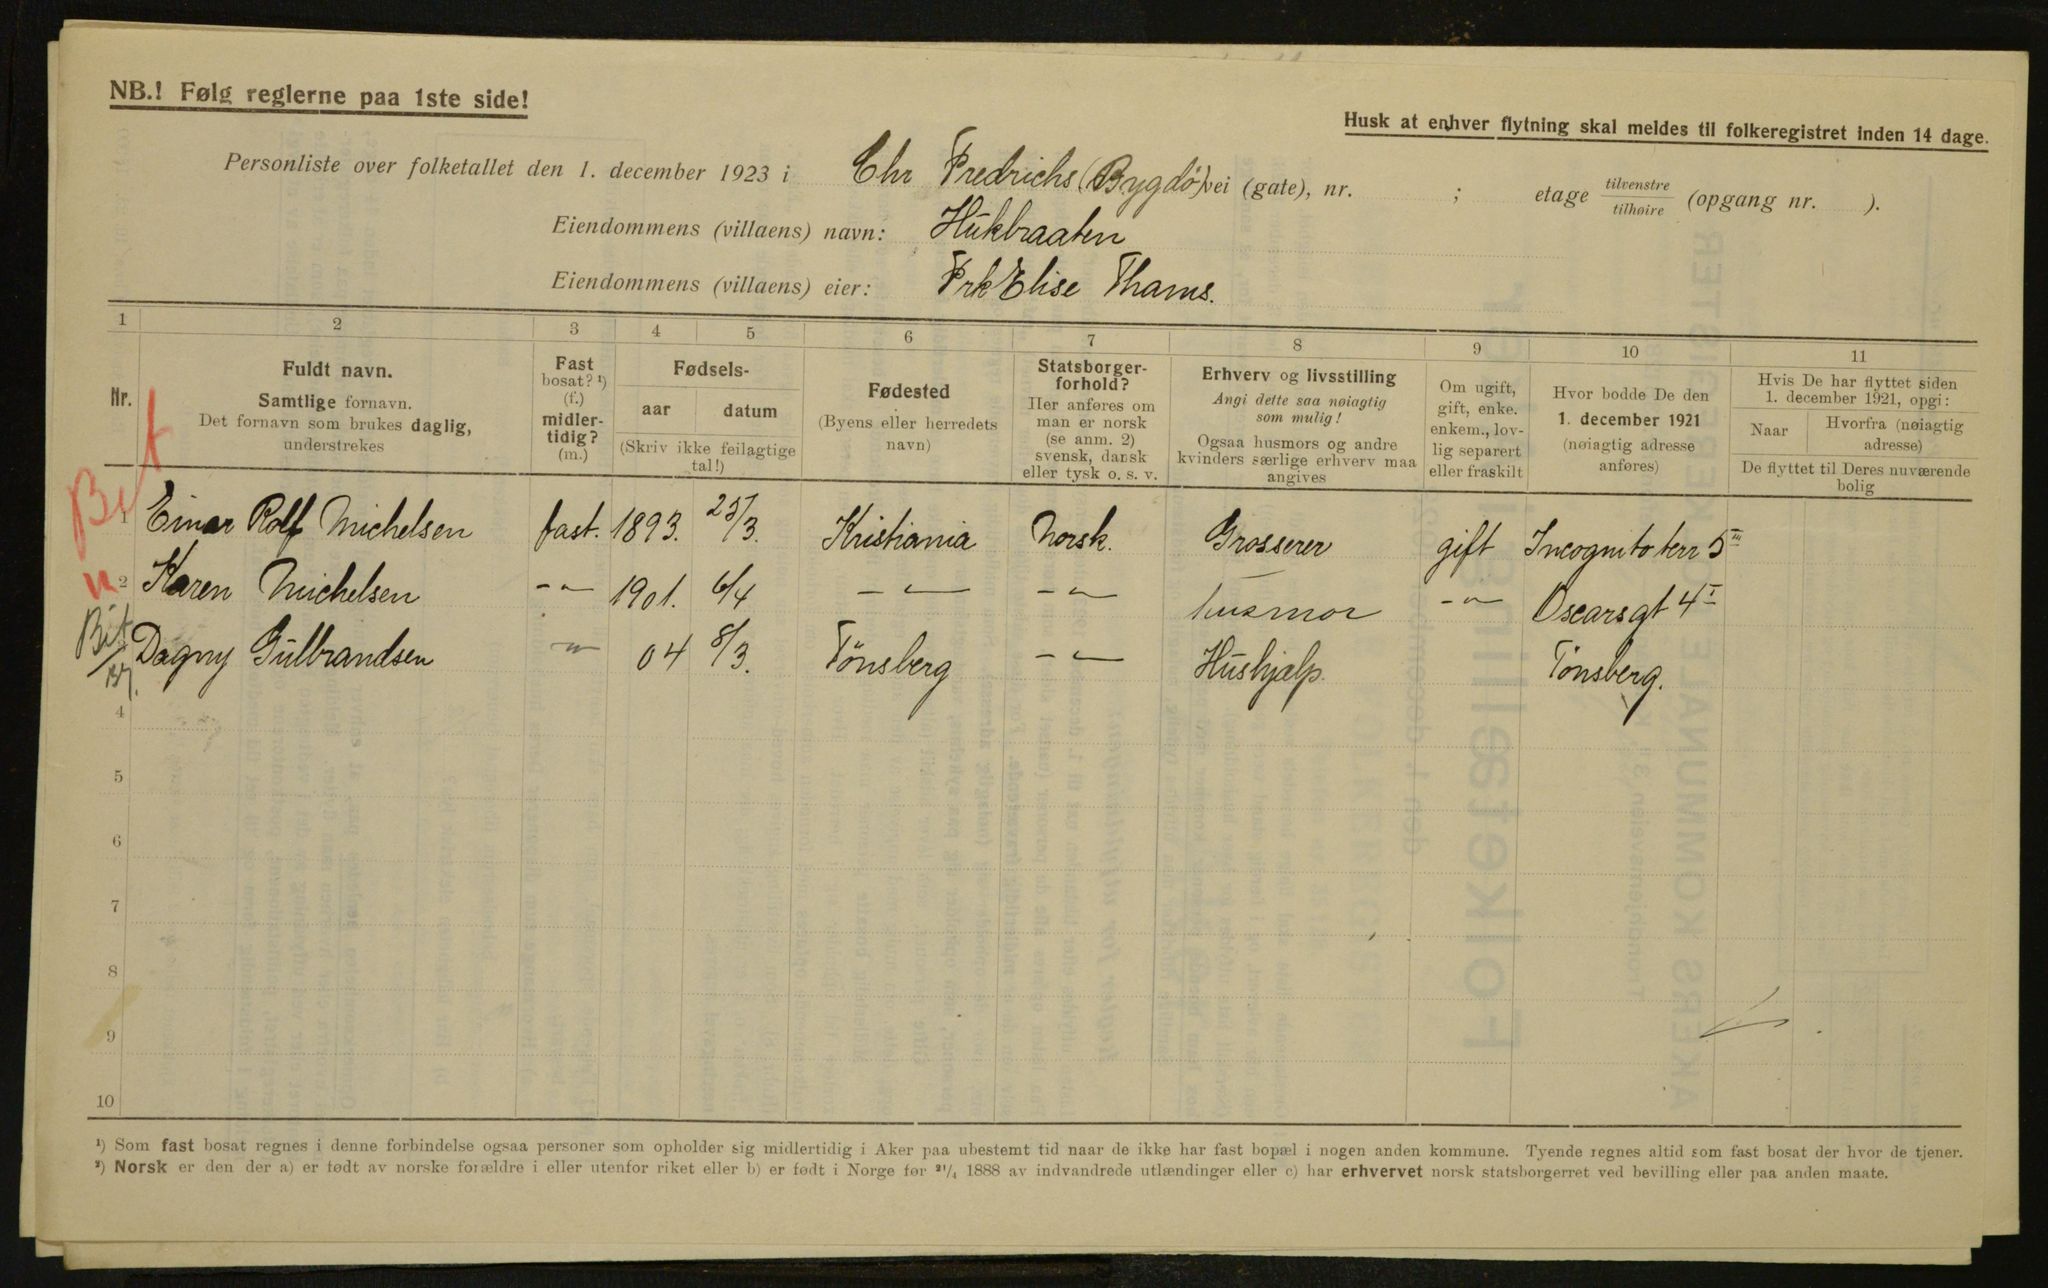 NB.! Følg reglerne paa 1ste side!
Husk at enhver flytning skal meldes til folkeregistret inden 14 dage.
Personliste over folketallet den 1. december 1923 i Chr Fredrichs (Bygdö) vei (gate), nr. ; etage tilvenstre/tilhøire (opgang nr. ).
Eiendommens (villaens) navn: Hukbraaten
Eiendommens (villaens) eier: Frk Elise Thams.
1 2 3 4 5 6 7 8 9 10 11
Nr.
Fuldt navn.
Samtlige fornavn.
Det fornavn som brukes daglig,
understrekes
Fast
bosat? ¹)
(f.)
midler-
tidig?
(m.)
Fødsels-
aar datum
(Skriv ikke feilagtige
tal!)
Fødested
(Byens eller herredets
navn)
Statsborger-
forhold?
Her anføres om
man er norsk
(se anm. 2)
svensk, dansk
eller tysk o. s. v.
Erhverv og livsstilling
Angi dette saa nøiagtig
som mulig!
Ogsaa husmors og andre
kvinders særlige erhverv maa
angives
Om ugift,
gift, enke.
enkem., lov-
lig separert
eller fraskilt
Hvor bodde De den
1. december 1921
(nøiagtig adresse
anføres)
Hvis De har flyttet siden
1. december 1921, opgi:
Naar Hvorfra (nøiagtig
adresse)
De flyttet til Deres nuværende
bolig
Bit
1 Einar Rolf Michelsen fast. 1893. 25/3. Kristiania Norsk. Grosserer gift Incognito terr 5 III
" 2 Karen Michelsen -"- 1901. 6/4 -"- -"- husmor -"- Oscarsgt 4 I
Bit
Dagny Gulbrandsen " 04 8/3. Tönsberg -"- Hushjælp. Tönsberg.
4
5
6
7
8
9
10
¹) Som fast bosat regnes i denne forbindelse ogsaa personer som opholder sig midlertidig i Aker paa ubestemt tid naar de ikke har fast bopæl i nogen anden kommune. Tyende regnes altid som fast bosat der hvor de tjener.
²) Norsk er den der a) er født av norske forældre i eller utenfor riket eller b) er født i Norge før ²¹/₄ 1888 av indvandrede utlændinger eller c) har erhvervet norsk statsborgerret ved bevilling eller paa anden maate.